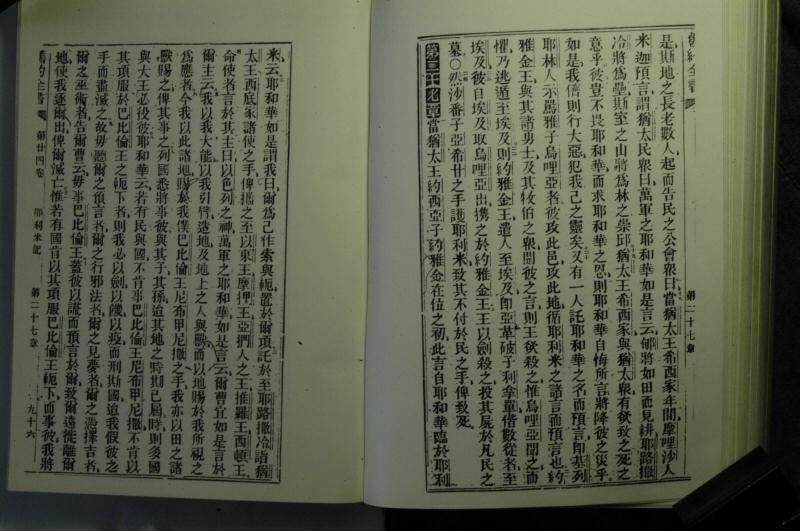 舊約全書
第二十七章
是斯地之長老數人起而告民之公會眾曰當猶太王希西家年間摩哩沙人
米迦預言謂猶太民眾曰萬軍之耶和華如是言云郇將如田而見耕耶路撒
冷將為壘斯室之山將為林之崇邱猶太王希西家與猶太眾有欲致之死之
意乎彼豈不畏耶和華而求耶和華之恩則耶和華自悔所言將降彼之災乎
如是我儕則行大惡犯我己之靈矣又有一人託耶和華之名而預言即基列
耶林人示罵雅子烏哩亞者彼攻此邑攻此地循耶利米之諸言而預言也約
雅金王與其諸勇士及其牧伯之眾聞彼之言則王欲殺之惟烏哩亞聞之而
懼乃逃遁至埃及則約雅金王遣人至埃及即亞革破子利拿單偕數從者至
埃及彼自埃及取烏哩亞出攜之於約雅金王王以劍殺之投其屍於凡民之
墓○然沙番子亞希甘之手護耶利米致其不付於民之手俾致死
第二十七章當猶太王約西亞子約雅金在位之初此言自耶和華臨於耶利
米云耶和華如是謂我曰爾為己作索與軛置於爾項託於至耶路撒冷詣猶
太王西底家諸使之手俾攜之至以東王摩押王亞捫人之王推羅王西頓王
命使者言於其主曰以色列之神萬軍之耶和華如是言云爾曹宜如是言於
爾主云我以我大能以我引臂造地及地上之人與獸而以地賜於我所視之
為應者今我以此諸地賜於我僕巴比倫王尼布甲尼撒之手我亦以田之諸
獸賜之俾其事之列國悉將事彼與其子其孫迨其地之時期已屆時則多國
與大王必役彼耶和華云若有民與國不肯事巴比倫王尼布甲尼撒不肯以
其項服於巴比倫王之軛下者則我必以劍以饑以疫而刑斯國迨我假彼之
手而盡滅之故毋聽爾之預言者爾之行邪法者爾之見夢者爾之憑擇吉者
爾之巫術者告爾曹云毋事巴比倫王蓋彼以謊而預言於爾致爾遠徙離爾
地使我逐爾出俾爾滅亡惟若有國肯以其項服巴比倫王軛下而事彼我將
舊約全書
第廿四卷
耶利米記
第二十七章
九十六